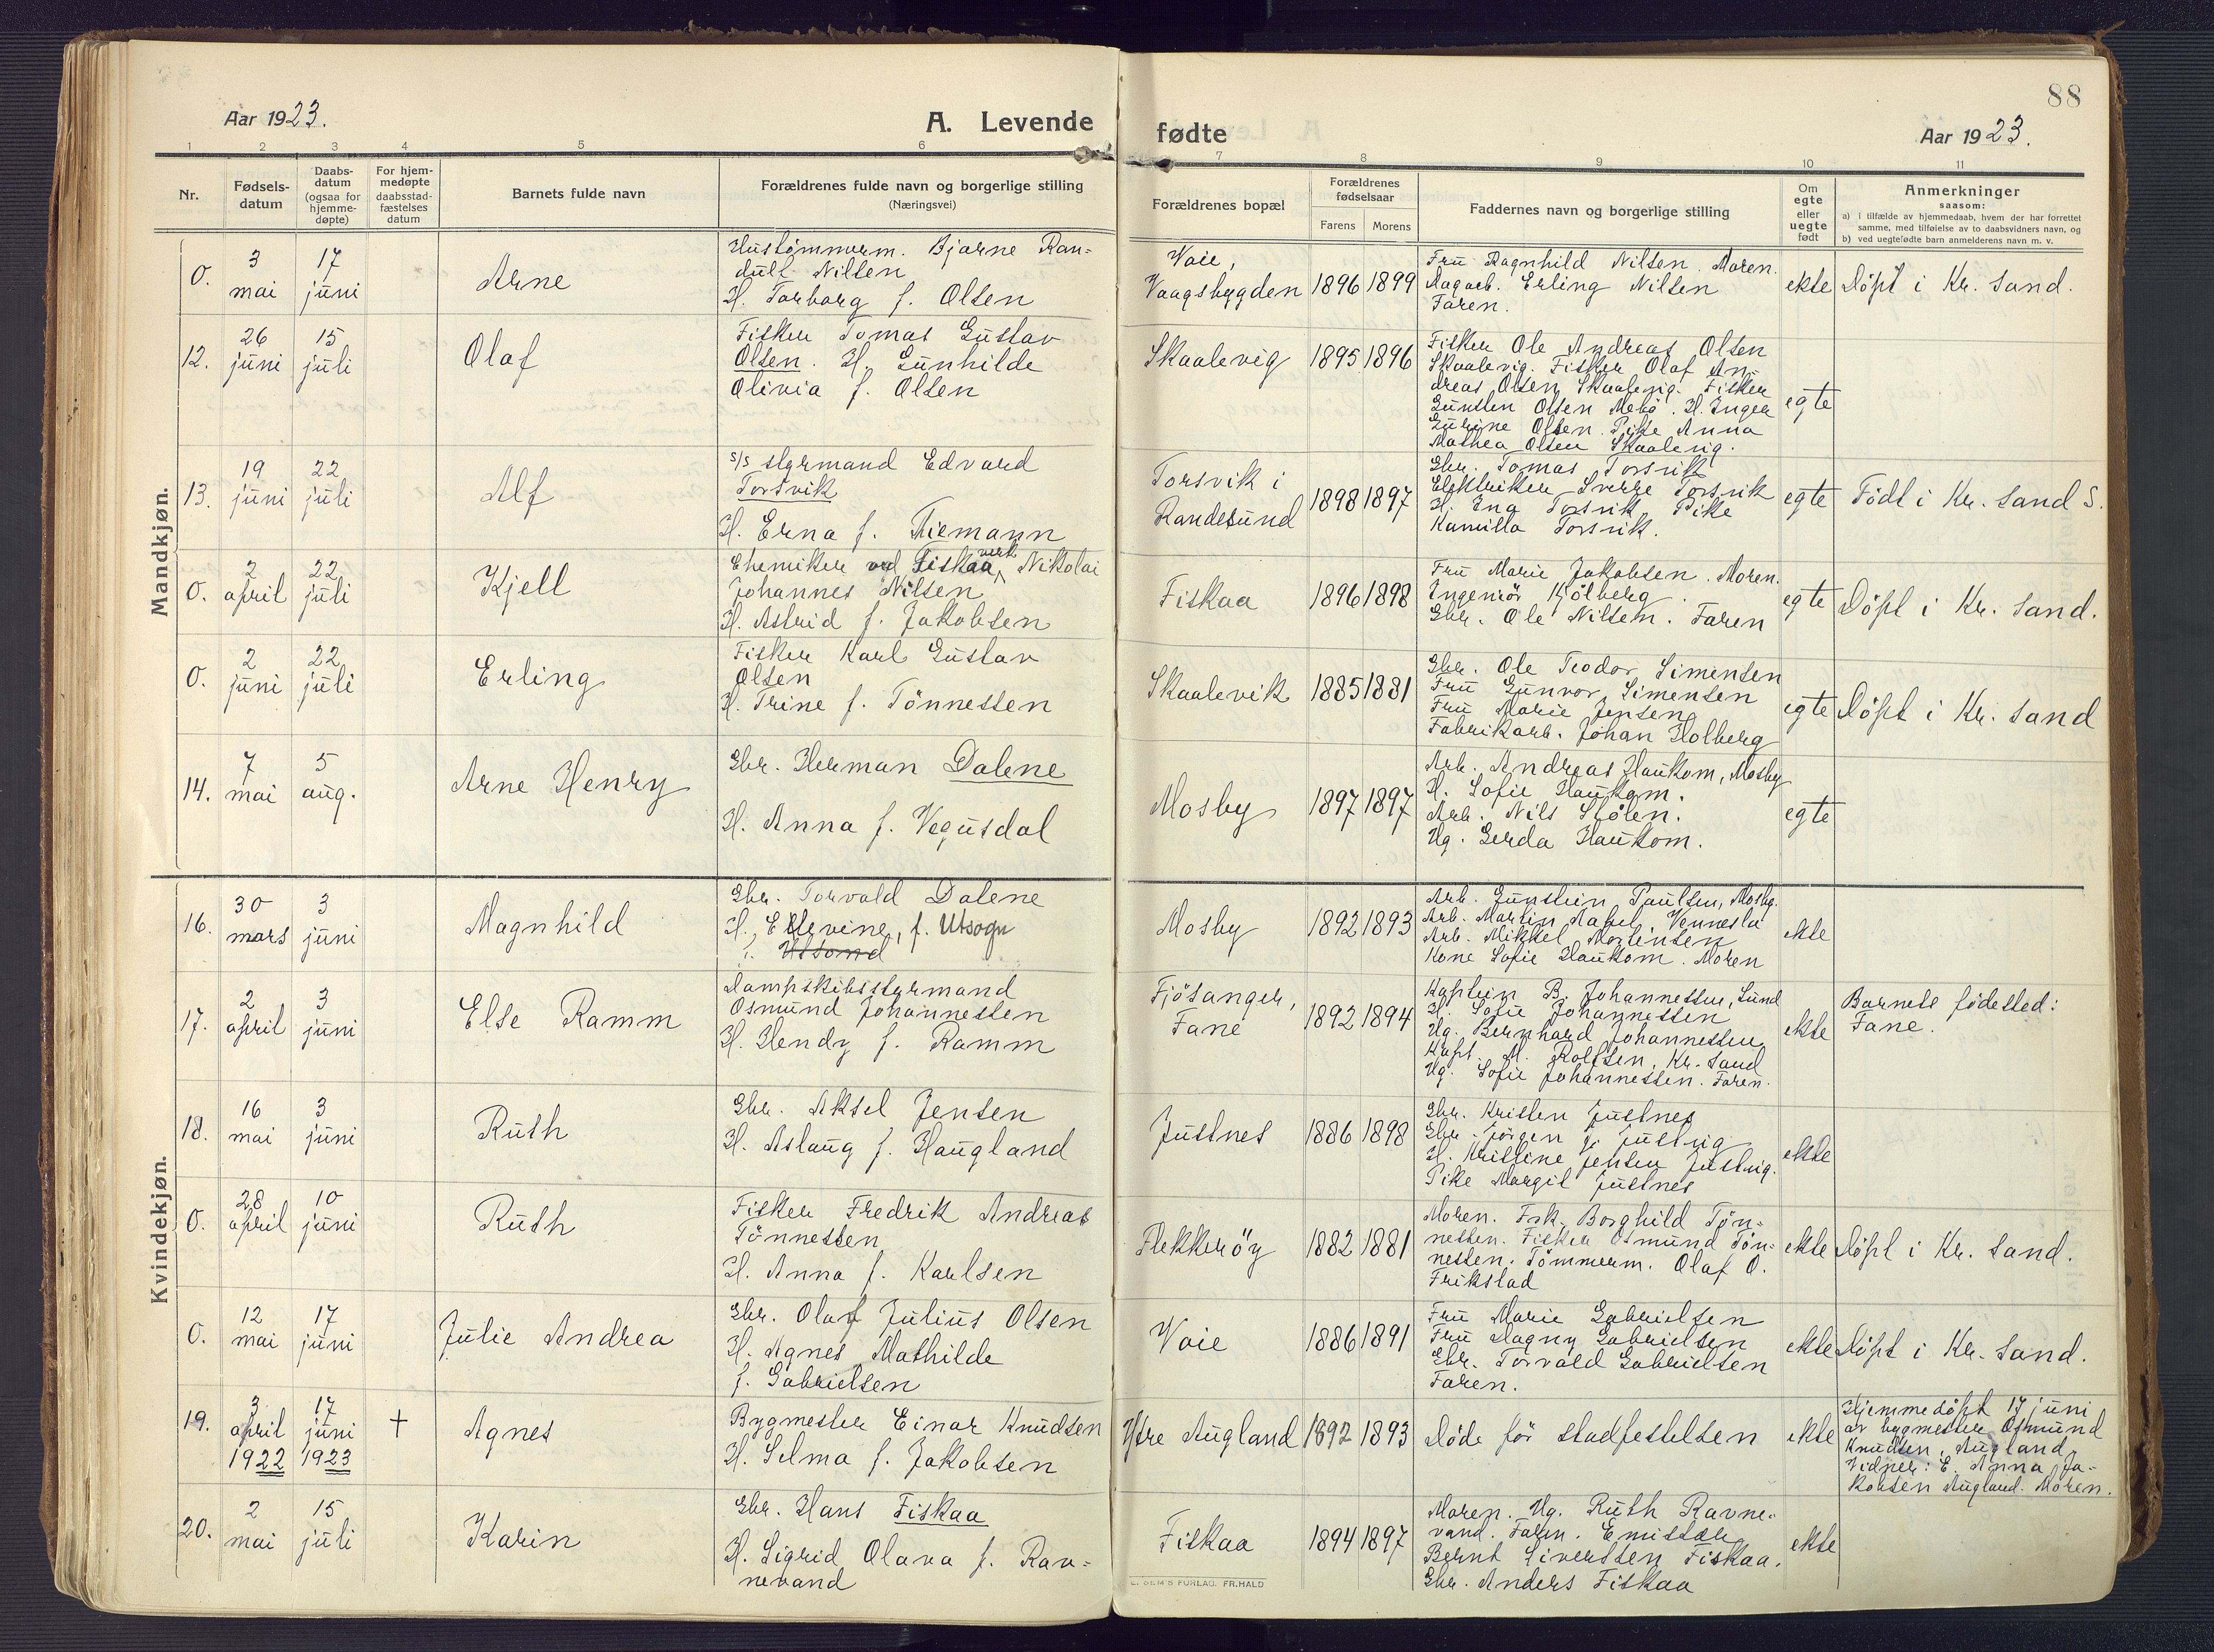 88
Aar 1923.
A. Levende fødte
Aar 1923.
1 2 3 4 5 6 7 8 9 10 11
Nr.
Fødsels-
datum
Daabs-
datum
(ogsaa for
hjemme-
døpte)
For hjem-
medøpte
daabsstad-
fæstelses
datum
Barnets fulde navn
Forældrenes fulde navn og borgerlige stilling
(Næringsvei)
Forældrenes bopæl
Forældrenes
fødselsaar
Farens Morens
Faddernes navn og borgerlige stilling
Om
egte
eller
uegte
født
Anmerkninger
saasom:
a) i tilfælde av hjemmedaab, hvem der har forrettet
samme, med tilføielse av to daabsvidners navn, og
b) ved uegtefødte barn anmelderens navn m. v.
Mandkjøn.
0.
3
mai
17
juni
Arne
Hustømmerm. Bjarne Ran-
dulf Nilsen
H. Torborg f. Olsen
Voie,
Vaagsbygden
1896 1899
Fru Ragnhild Nilsen. Moren.
Erling Nilsen
Faren.
ekte
Döpt i Kr. sand.
12.
26
juni
15
juli
Olaf
Fisker Tomas Gustav
Olsen. H. Gunhilde
Olivia f. Olsen
Skaalevig
1895 1896
Fisker Ole Andreas Olsen
Skaalevig. Fisker Olaf An-
dreas Olsen Skaalevig. Fisker
Gunsten Olsen Mebö. H. Inger
Gurine Olsen. Pike Anna
Mathea Olsen Skaalevig.
egte
13.
19
juni
22
juli
Alf
s/s styrmand Edvard
Torsvik
H. Erna f. Tiemann
Torsvik i
Randesund
1898 1897
Gbr. Tomas Torsvik
Elektriker Sverre Torsvik
H. Ena Torsvik Pike
Kamilla Torsvik.
egte
Födt i Kr. sand S.
0.
2
april
22
juli
Kjell
Chemiker ved Fiskaa verk Nikolai
Johannes Nilsen
H. Astrid f. Jakobsen
Fiskaa
1896 1898
Fru Marie Jakobsen. Moren.
Ingeniör Kjölberg.
Gbr. Ole Nilsen. Faren
egte
Döpt i Kr. sand.
0.
2
juni
22
juli
Erling
Fisker Karl Gustav
Olsen
H. Trine f. Tönnessen
Skaalevik
1885 1881
Gbr. Ole Teodor Simensen
Fru Gunvor Simensen
Fru Marie Jensen
Fabrikarb. Johan Holberg
egte
Döpt i Kr. sand
14.
7
mai
5
aug.
Arne Henry
Gbr. Herman Dalene
H. Anna f. Vegusdal
Mosby
1897 1897
Arb. Andreas Haukom, Mosby
H. Sofie Haukom.
Arb. Nils Stölen.
Ug. Gerda Haukom.
egte
Kvindekjøn.
16.
30
mars
3
juni
Magnhild
Gbr. Torvald Dalene
H. Ellevine, f. Utsogn
f. Utsond
Mosby
1892 1893
Arb. Gunstein Paulsen, Mosby.
Arb. Martin Aabel, Vennesla
Arb. Mikkel Mortensen
Kone Sofie Haukom. Moren
ekte
17.
2
april
3
juni
Else Ramm
Dampskibsstyrmand
Osmund Johannessen
H. Hendy f. Ramm
Fjösanger,
Fane
1892 1894
Kaptein B. Johannessen, Lund
H. Sofie Johannessen
Ug. Bernhard Johannessen
Kapt. M. Rolfsen, Kr. sand
Ug. Sofie Johannessen. Faren.
ekte
Barnets födested:
Fane.
18.
16
mai
3
juni
Ruth
Gbr. Aksel Jensen
H. Aslaug f. Haugland
Justnes
1886 1898
Gbr. Kristen Justnes
Gbr. Jörgen J. Justvig
H. Kristine Jensen Justvig.
Pike Margit Justnes
ekte
0.
28
april
10
juni
Ruth
Fisker Fredrik Andreas
Tönnessen
H. Anna f. Karlsen
Flekkeröy
1882 1881
Moren. Frk. Borghild Tön-
nessen. Fisker Osmund Tön-
nessen. Tömmerm. Olaf O.
Frikstad
ekte
Döpt i Kr. sand.
0.
12
mai
17
juni
Julie Andrea
Gbr. Olaf Julius Olsen
H. Agnes Mathilde
f. Gabrielsen
Voie
1886 1891
Fru Marie Gabrielsen
Fru Dagny Gabrielsen
Gbr. Torvald Gabrielsen
Faren.
ekte
Döpt i Kr. sand.
19.
3
april
1922
17
juni
1923
†
Agnes
Bygmester Einar Knudsen
H. Selma f. Jakobsen
Ytre Augland
1892 1893
Döde för stadfestelsen
ekte
Hjemmedöpt 17 juni
av bygmester Osmund
Knudsen, Augland.
Vidner: E. Anna Ja-
kobsen Augland. Moren.
20.
2
mai
15
juli
Karin
Gbr. Hans Fiskaa
H. Sigrid Olava f. Rav-
nevand
Fiskaa
1894 1897
Moren. Ug. Ruth Ravne-
vand. Faren. Emissær
Bernt Sivertsen Fiskaa.
Gbr. Anders Fiskaa
ekte
E. SEM'S FORLAG. FR.HALD